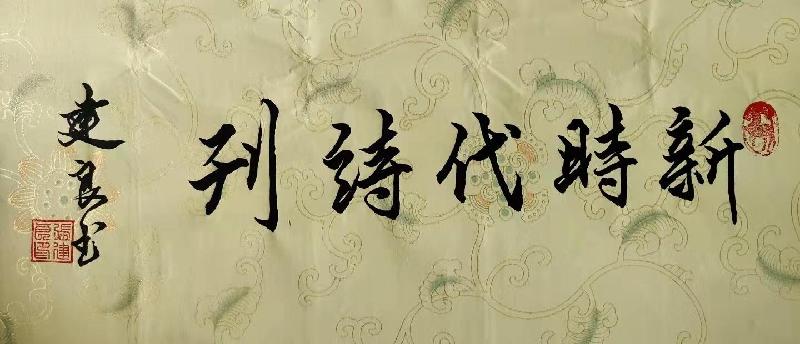 新時代詩刊
建良书